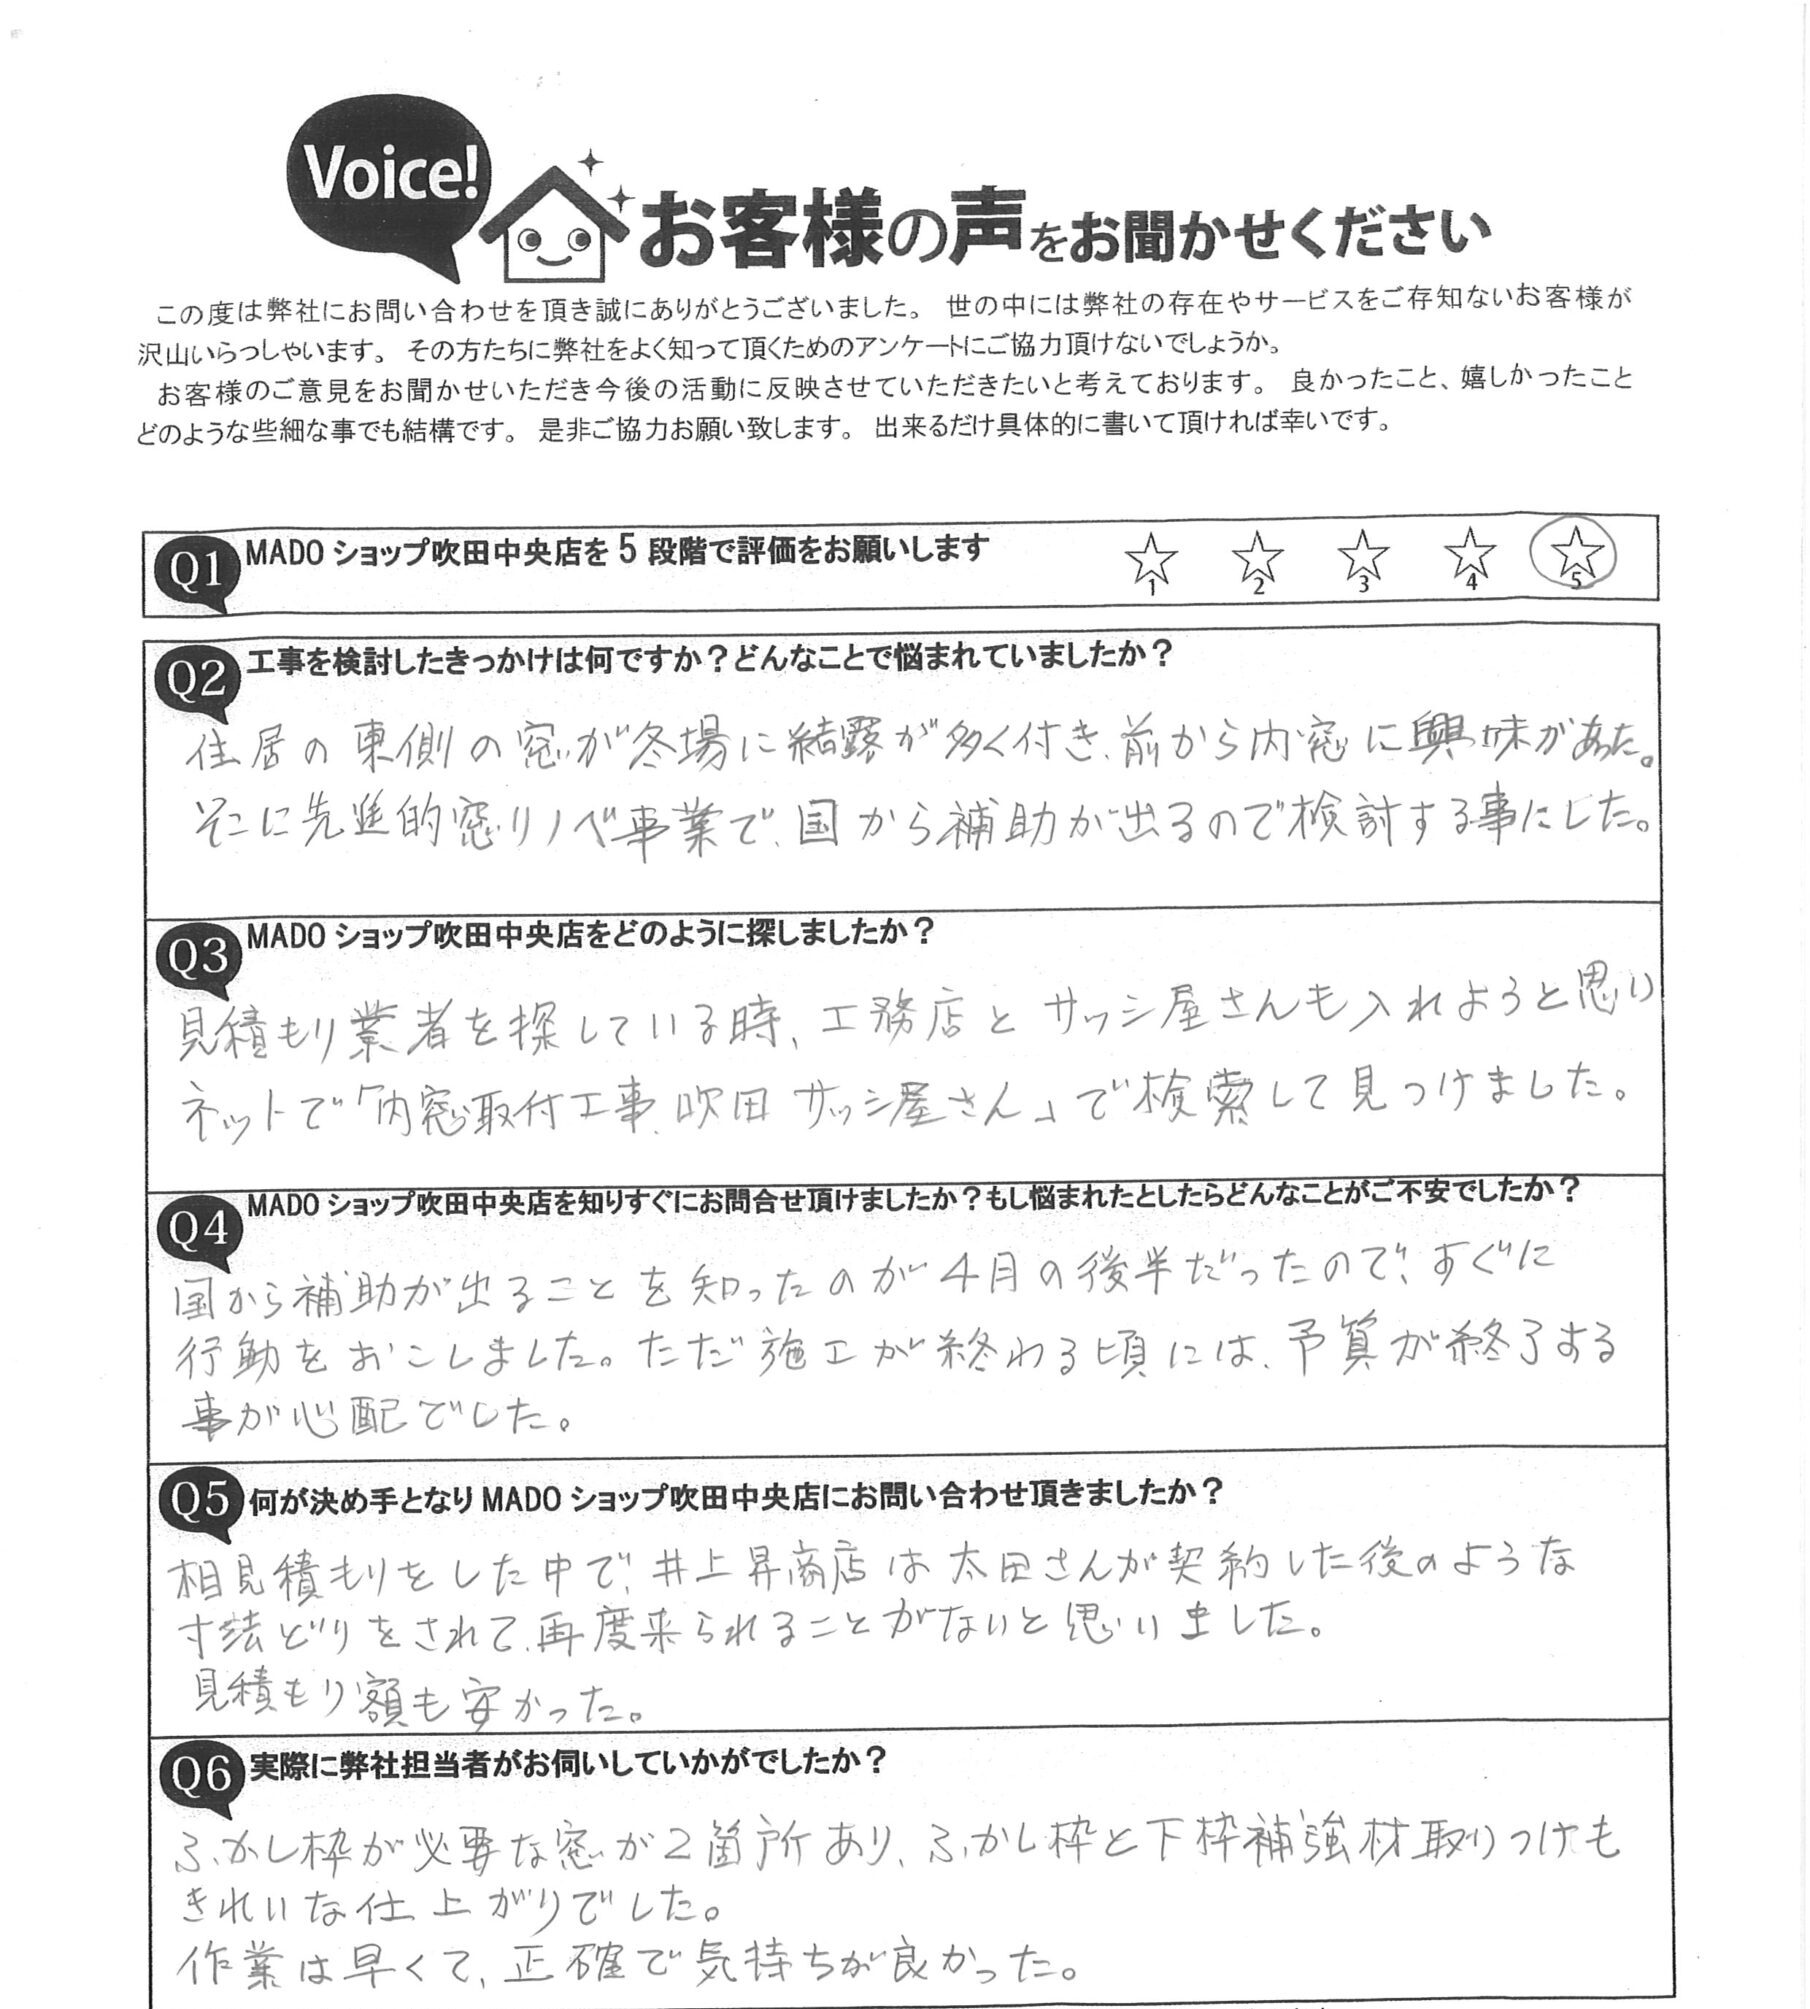 Voice!
お客様の声をお聞かせください
この度は弊社にお問い合わせを頂き誠にありがとうございました。 世の中には弊社の存在やサービスをご存知ないお客様が
沢山いらっしゃいます。 その方たちに弊社をよく知って頂くためのアンケートにご協力頂けないでしょうか。
お客様のご意見をお聞かせいただき今後の活動に反映させていただきたいと考えております。 良かったこと、嬉しかったこと
どのような些細な事でも結構です。 是非ご協力お願い致します。 出来るだけ具体的に書いて頂ければ幸いです。
Q1 MADO ショップ吹田中央店を 5 段階で評価をお願いします 1 2 3 4 5
Q2 工事を検討したきっかけは何ですか？どんなことで悩まれていましたか？
住居の東側の窓が冬場に結露が多く付き、前から内窓に興味があった。
そこに先進的窓リノベ事業で、国から補助が出るので検討する事にした。
Q3 MADO ショップ吹田中央店をどのように探しましたか？
見積もり業者を探している時、工務店とサッシ屋さんも入れようと思い
ネットで「内窓取付工事、吹田 サッシ屋さん」で検索して見つけました。
Q4 MADO ショップ吹田中央店を知りすぐにお問合せ頂けましたか？もし悩まれたとしたらどんなことがご不安でしたか？
国から補助が出ることを知ったのが4月の後半だったので、すぐに
行動をおこしました。ただ施工が終わる頃には、予算が終了する
事が心配でした。
Q5 何が決め手となり MADO ショップ吹田中央店にお問い合わせ頂きましたか？
相見積もりをした中で、井上昇商店は太田さんが契約した後のような
寸法どりをされて、再度来られることがないと思いました。
見積もり額も安かった。
Q6 実際に弊社担当者がお伺いしていかがでしたか？
ふかし枠が必要な窓が2箇所あり、ふかし枠と下枠補強材取りつけも
きれいな仕上がりでした。
作業は早くて、正確で気持ちが良かった。